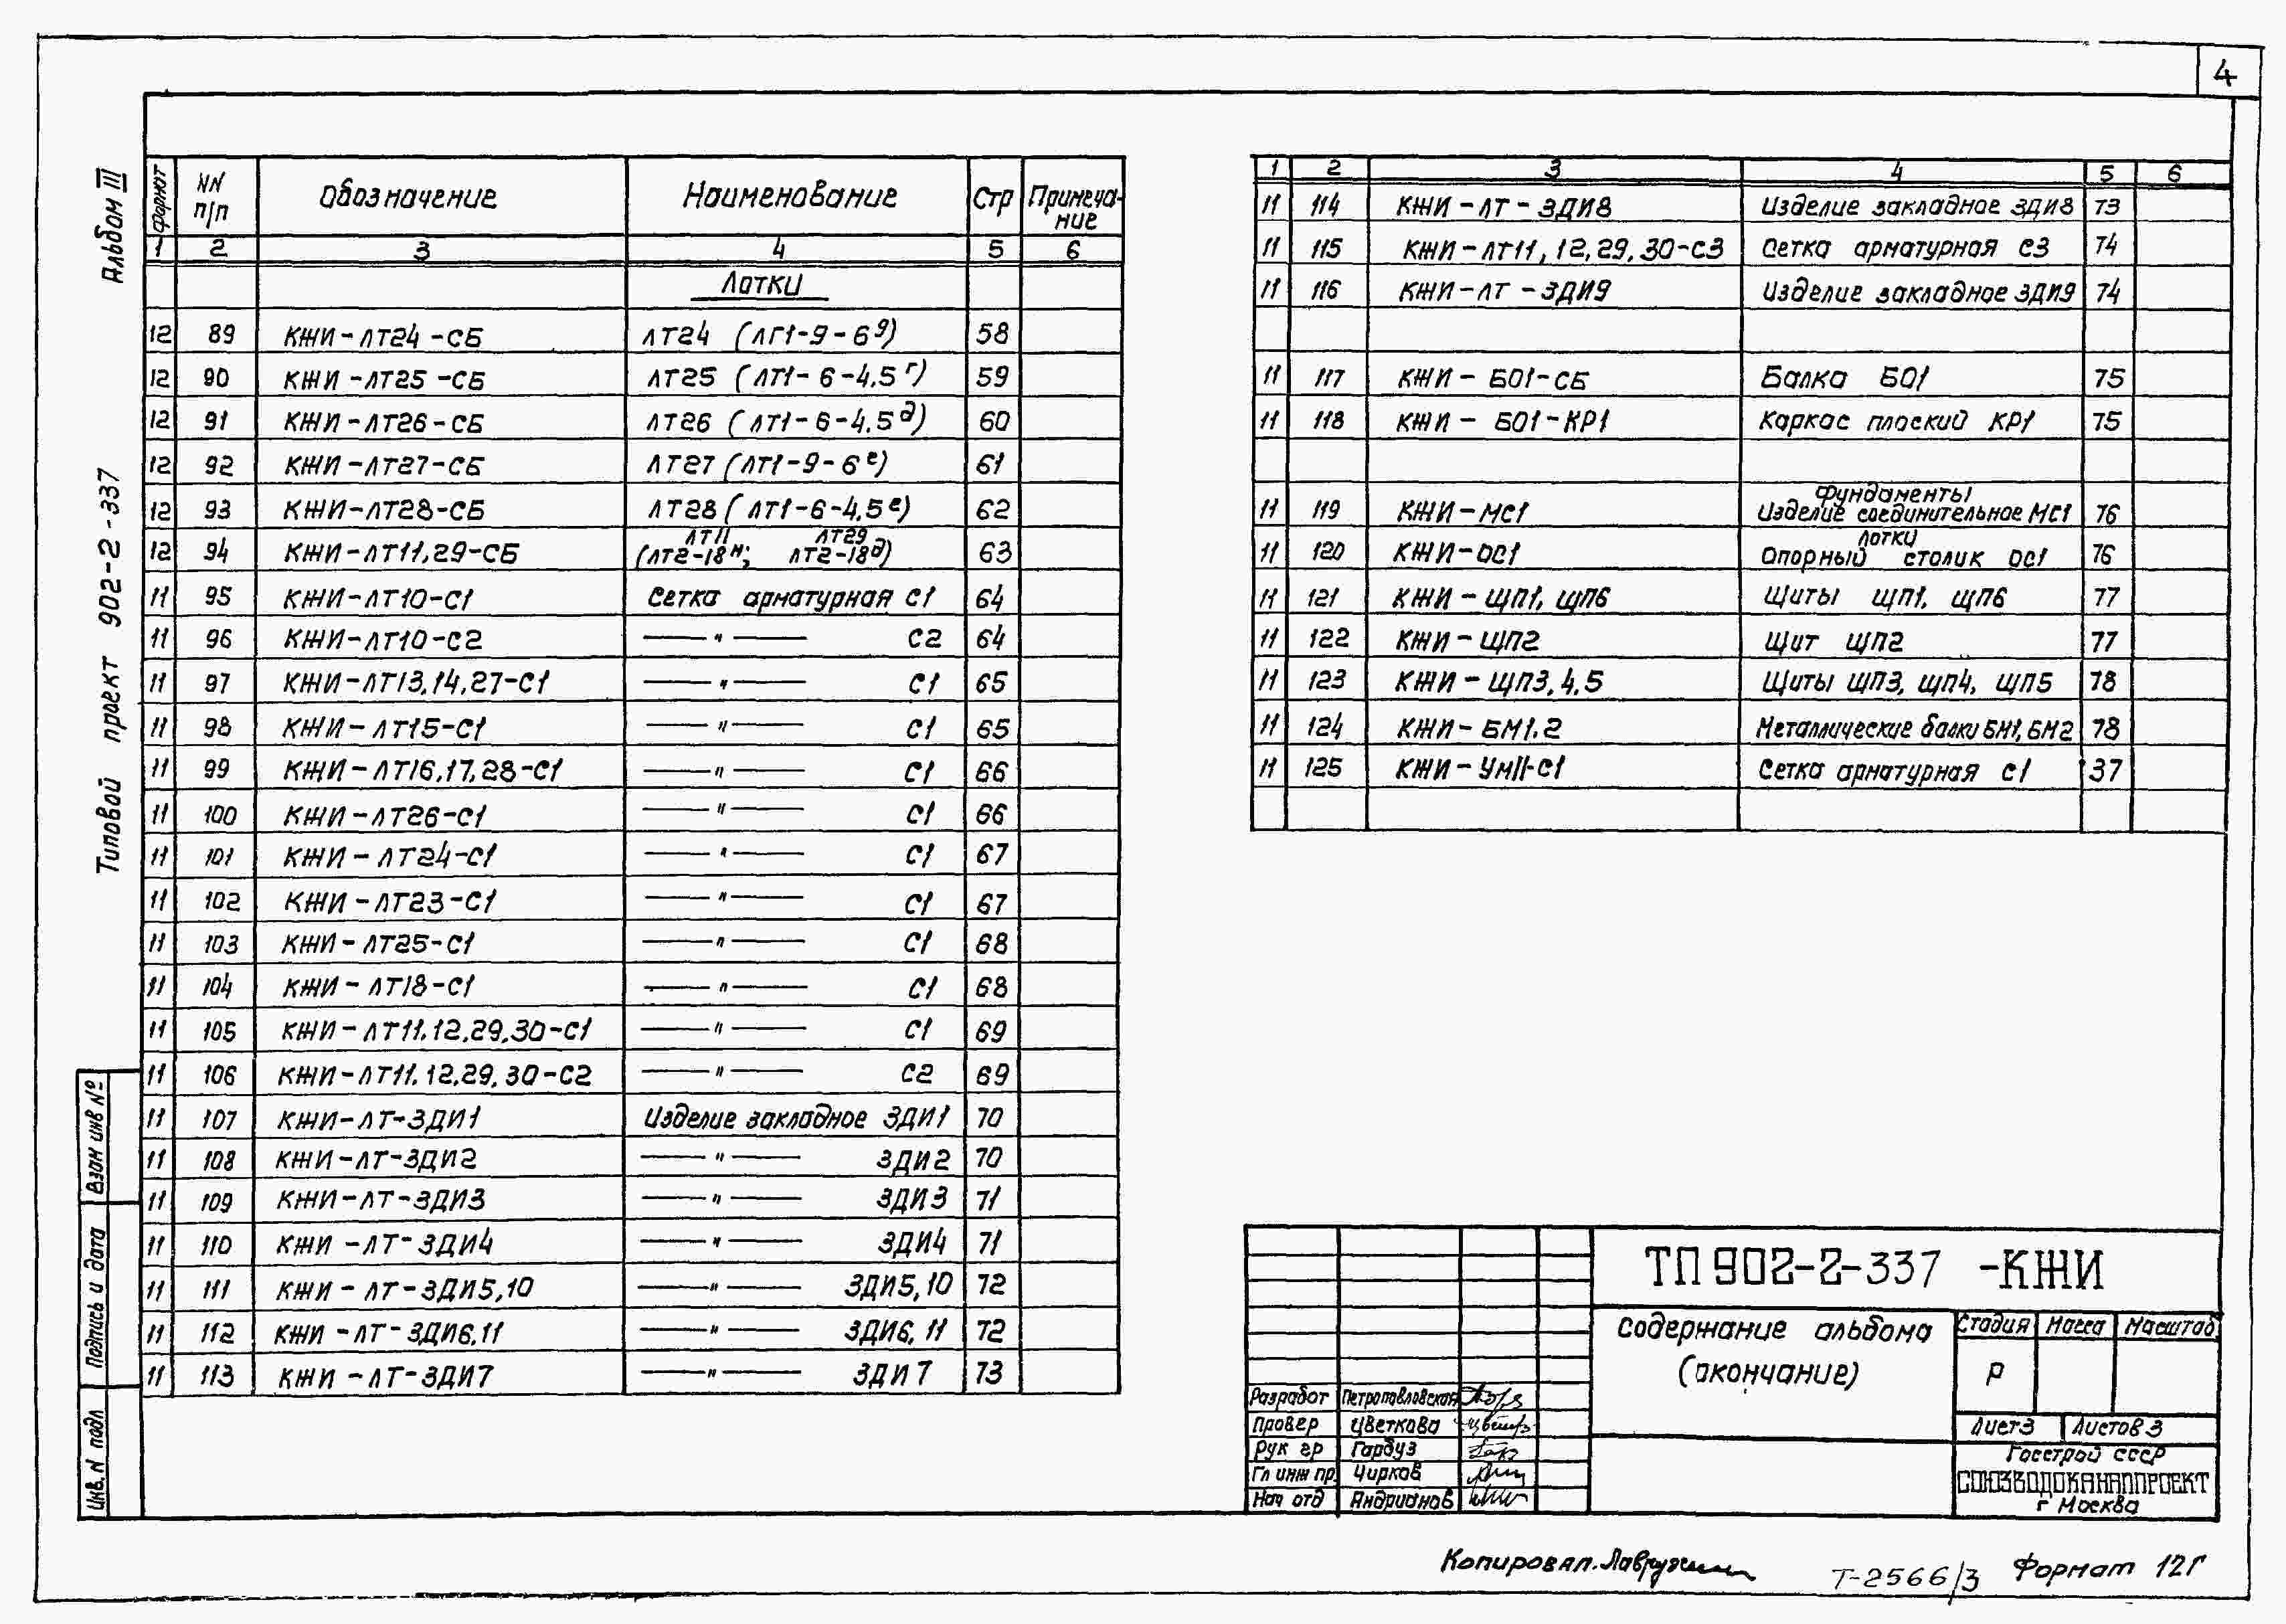 4
Альбом III
Типовой проект 902-2-337
Формат | NN п/п | Обозначение | Наименование | Стр | Примечание
1 | 2 | 3 | 4 | 5 | 6
Лотки
12 | 89 | КЖИ-ЛТ24-СБ | ЛТ24 (ЛГ1-9-6д) | 58
12 | 90 | КЖИ-ЛТ25-СБ | ЛТ25 (ЛТ1-6-4,5г) | 59
12 | 91 | КЖИ-ЛТ26-СБ | ЛТ26 (ЛТ1-6-4,5д) | 60
12 | 92 | КЖИ-ЛТ27-СБ | ЛТ27 (ЛТ1-9-6е) | 61
12 | 93 | КЖИ-ЛТ28-СБ | ЛТ28 (ЛТ1-6-4,5е) | 62
12 | 94 | КЖИ-ЛТ11,29-СБ | ЛТ11 ЛТ29 (ЛТ2-18н; ЛТ2-18д) | 63
11 | 95 | КЖИ-ЛТ10-С1 | Сетка арматурная С1 | 64
11 | 96 | КЖИ-ЛТ10-С2 | —"— С2 | 64
11 | 97 | КЖИ-ЛТ13,14,27-С1 | —"— С1 | 65
11 | 98 | КЖИ-ЛТ15-С1 | —"— С1 | 65
11 | 99 | КЖИ-ЛТ16,17,28-С1 | —"— С1 | 66
11 | 100 | КЖИ-ЛТ26-С1 | —"— С1 | 66
11 | 101 | КЖИ-ЛТ24-С1 | —"— С1 | 67
11 | 102 | КЖИ-ЛТ23-С1 | —"— С1 | 67
11 | 103 | КЖИ-ЛТ25-С1 | —"— С1 | 68
11 | 104 | КЖИ-ЛТ18-С1 | —"— С1 | 68
11 | 105 | КЖИ-ЛТ11.12.29.30-С1 | —"— С1 | 69
11 | 106 | КЖИ-ЛТ11.12.29.30-С2 | —"— С2 | 69
11 | 107 | КЖИ-ЛТ-ЗДИ1 | Изделие закладное ЗДИ1 | 70
11 | 108 | КЖИ-ЛТ-ЗДИ2 | —"— ЗДИ2 | 70
11 | 109 | КЖИ-ЛТ-ЗДИ3 | —"— ЗДИ3 | 71
11 | 110 | КЖИ-ЛТ-ЗДИ4 | —"— ЗДИ4 | 71
11 | 111 | КЖИ-ЛТ-ЗДИ5,10 | —"— ЗДИ5,10 | 72
11 | 112 | КЖИ-ЛТ-ЗДИ6,11 | —"— ЗДИ6,11 | 72
11 | 113 | КЖИ-ЛТ-ЗДИ7 | —"— ЗДИ7 | 73
1 | 2 | 3 | 4 | 5 | 6
11 | 114 | КЖИ-ЛТ-ЗДИ8 | Изделие закладное ЗДИ8 | 73
11 | 115 | КЖИ-ЛТ11,12,29,30-С3 | Сетка арматурная С3 | 74
11 | 116 | КЖИ-ЛТ-ЗДИ9 | Изделие закладное ЗДИ9 | 74
11 | 117 | КЖИ-БО1-СБ | Балка БО1 | 75
11 | 118 | КЖИ-БО1-КР1 | Каркас плоский КР1 | 75
11 | 119 | КЖИ-МС1 | Фундаменты Изделие соединительное МС1 | 76
11 | 120 | КЖИ-ОС1 | Лотки Опорный столик ОС1 | 76
11 | 121 | КЖИ-ЩП1, ЩП6 | Щиты ЩП1, ЩП6 | 77
11 | 122 | КЖИ-ЩП2 | Щит ЩП2 | 77
11 | 123 | КЖИ-ЩП3,4,5 | Щиты ЩП3, ЩП4, ЩП5 | 78
11 | 124 | КЖИ-БМ1.2 | Металлические балки БМ1, БМ2 | 78
11 | 125 | КЖИ-УМ11-С1 | Сетка арматурная С1 | 37
Взам инв №
Подпись и дата
Инв. N подл
ТП 902-2-337 -КЖИ
Содержание альбома
(окончание)
Стадия | Масса | Масштаб
Р
Лист 3 | Листов 3
Госстрой СССР
СОЮЗВОДОКАНАЛПРОЕКТ
г Москва
Разработ Петропавловская
Провер Цветкова
Рук гр Гарбуз
Гл инж пр. Чирков
Нач отд Андрианов
Копировал.
Т-2566/3
Формат 12Г